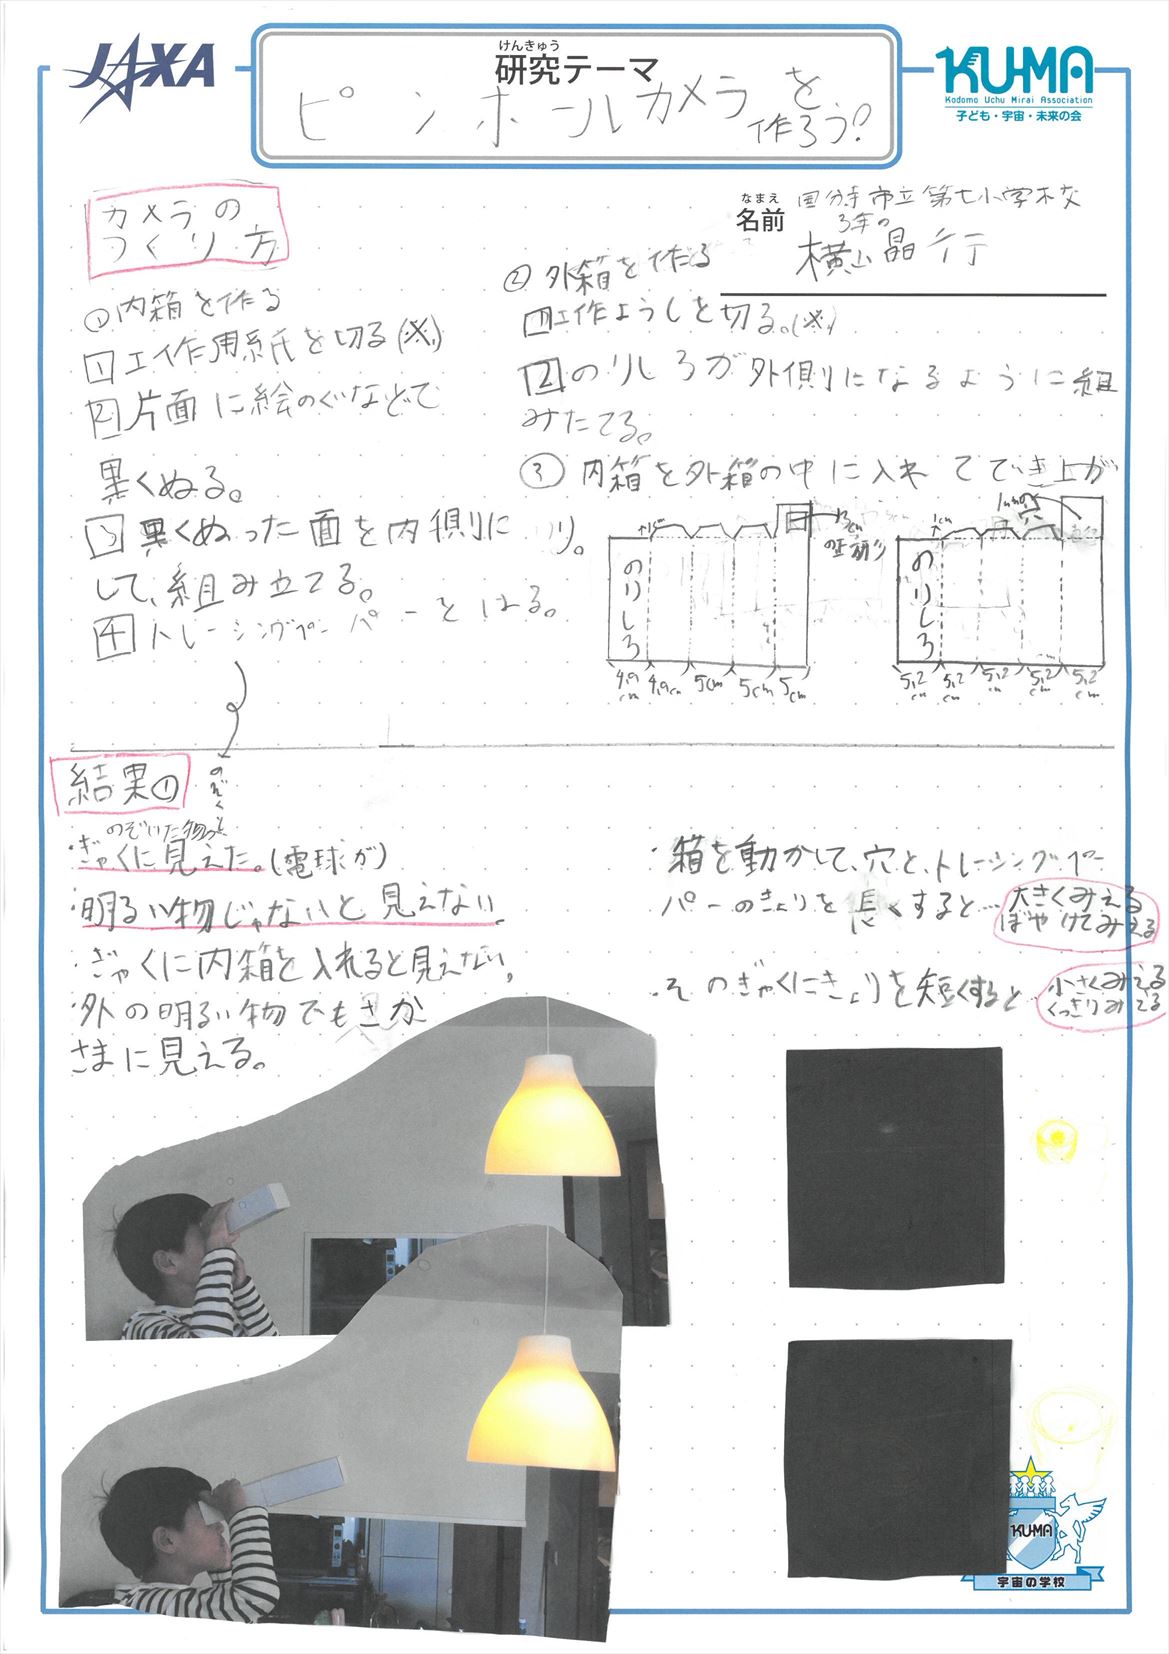 JAXA
けんきゅう
研究テーマ
ピンホールカメラを
作ろう!
KU-MA
Kodomo Uchu Mirai Association
子ども・宇宙・未来の会
なまえ
名前
国分寺市立第七小学校
3年の
横山晶行
カメラの
つくり方
①内箱を作る
1工作用紙を切る(※)
2片面に絵のぐなどで
黒くぬる。
3黒くぬった面を内側に
して、組み立てる。
4トレーシングペーパーをはる。
②外箱を作る
1工作ようしを切る。(※)
2のりしろが外側になるように組
みたてる。
③内箱を外箱の中に入れてでき上が
り。
1cm
のりしろ
4.9cm
4.9cm
5cm
5cm
5cm
1cm
1mmの穴
のりしろ
5.2cm
5.2cm
5.2cm
5.2cm
5.2cm
結果①
のぞくと
のぞいた物が
・ぎゃくに見えた。(電球が)
・明るい物じゃないと見えない。
・ぎゃくに内箱を入れると見えない。
・外の明るい物でもさか
さまに見える。
・箱を動かして、穴と、トレーシングペー
パーのきょりを長くすると…
大きくみえる
ぼやけてみえる
・そのぎゃくにきょりを短くすると…
小さくみえる
くっきりみてる
KU-MA
宇宙の学校